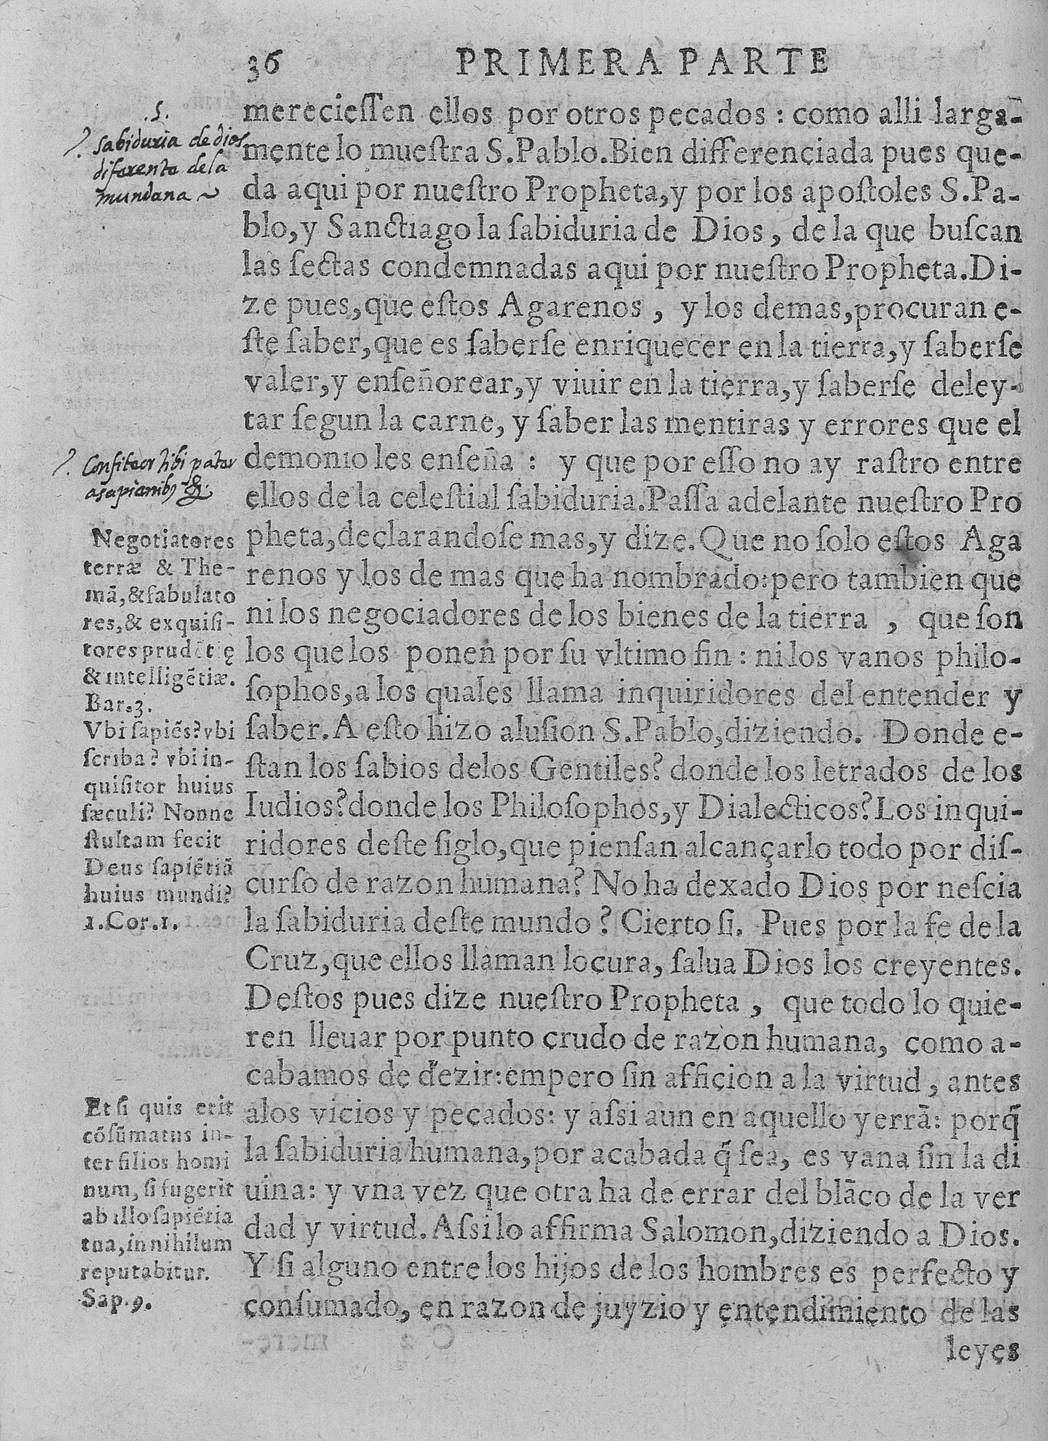 36 PRIMERA PARTE
.5.
?. sabiduria de dios
diferente de la
mundana ~
mereciessen ellos por otros pecados : como alli larga-
mente lo muestra S.Pablo.Bien differenciada pues que-
da aqui por nuestro Propheta,y por los apostoles S.Pa-
blo,y Sanctiago la sabiduria de Dios, de la que buscan
las sectas condemnadas aqui por nuestro Propheta.Di-
ze pues,que estos Agarenos , y los demas,procuran e-
ste saber,que es saberse enriquecer en la tierra,y saberse
valer,y enseñorear,y viuir en la tierra,y saberse deley-
tar segun la carne, y saber las mentiras y errores que el
?. Confiteor tibi pater
a sapientibus &
demonio les enseña : y que por esso no ay rastro entre
ellos de la celestial sabiduria.Passa adelante nuestro Pro
pheta,declarandose mas,y dize.Que no solo estos Aga
renos y los de mas que ha nombrado:pero tambien que
ni los negociadores de los bienes de la tierra , que son
los que los ponen por su vltimo fin : ni los vanos philo-
sophos,a los quales llama inquiridores del entender y
saber.A esto hizo alusion S.Pablo,diziendo. Donde e-
stan los sabios delos Gentiles? donde los letrados de los
Iudios?donde los Philosophos,y Dialecticos?Los inqui-
ridores deste siglo,que piensan alcançarlo todo por dis-
curso de razon humana? No ha dexado Dios por nescia
la sabiduria deste mundo ? Cierto si. Pues por la fe de la
Cruz,que ellos llaman locura, salua Dios los creyentes.
Negotiatores
terræ & The-
mã,& fabulato
res,& exquisi-
tores prudẽtię
& intelligẽtiæ.
Bar.3.
Vbi sapiẽs? vbi
scriba? vbi in-
quisitor huius
sæculi? Nonne
stultam fecit
Deus sapiẽtiã
huius mundi?
1.Cor.1.
Destos pues dize nuestro Propheta , que todo lo quie-
ren lleuar por punto crudo de razon humana, como a-
cabamos de dezir:empero sin afficion a la virtud, antes
alos vicios y pecados: y assi aun en aquello yerrã: porq̃
la sabiduria humana,por acabada q̃ sea, es vana sin la di
uina: y vna vez que otra ha de errar del blãco de la ver
dad y virtud. Assi lo affirma Salomon,diziendo a Dios.
Y si alguno entre los hijos de los hombres es perfecto y
consumado, en razon de juyzio y entendimiento de las
Et si quis erit
cõsũmatus in-
ter filios homi
num, si fugerit
ab illo sapiẽtia
tua,in nihilum
reputabitur.
Sap.9.
leyes